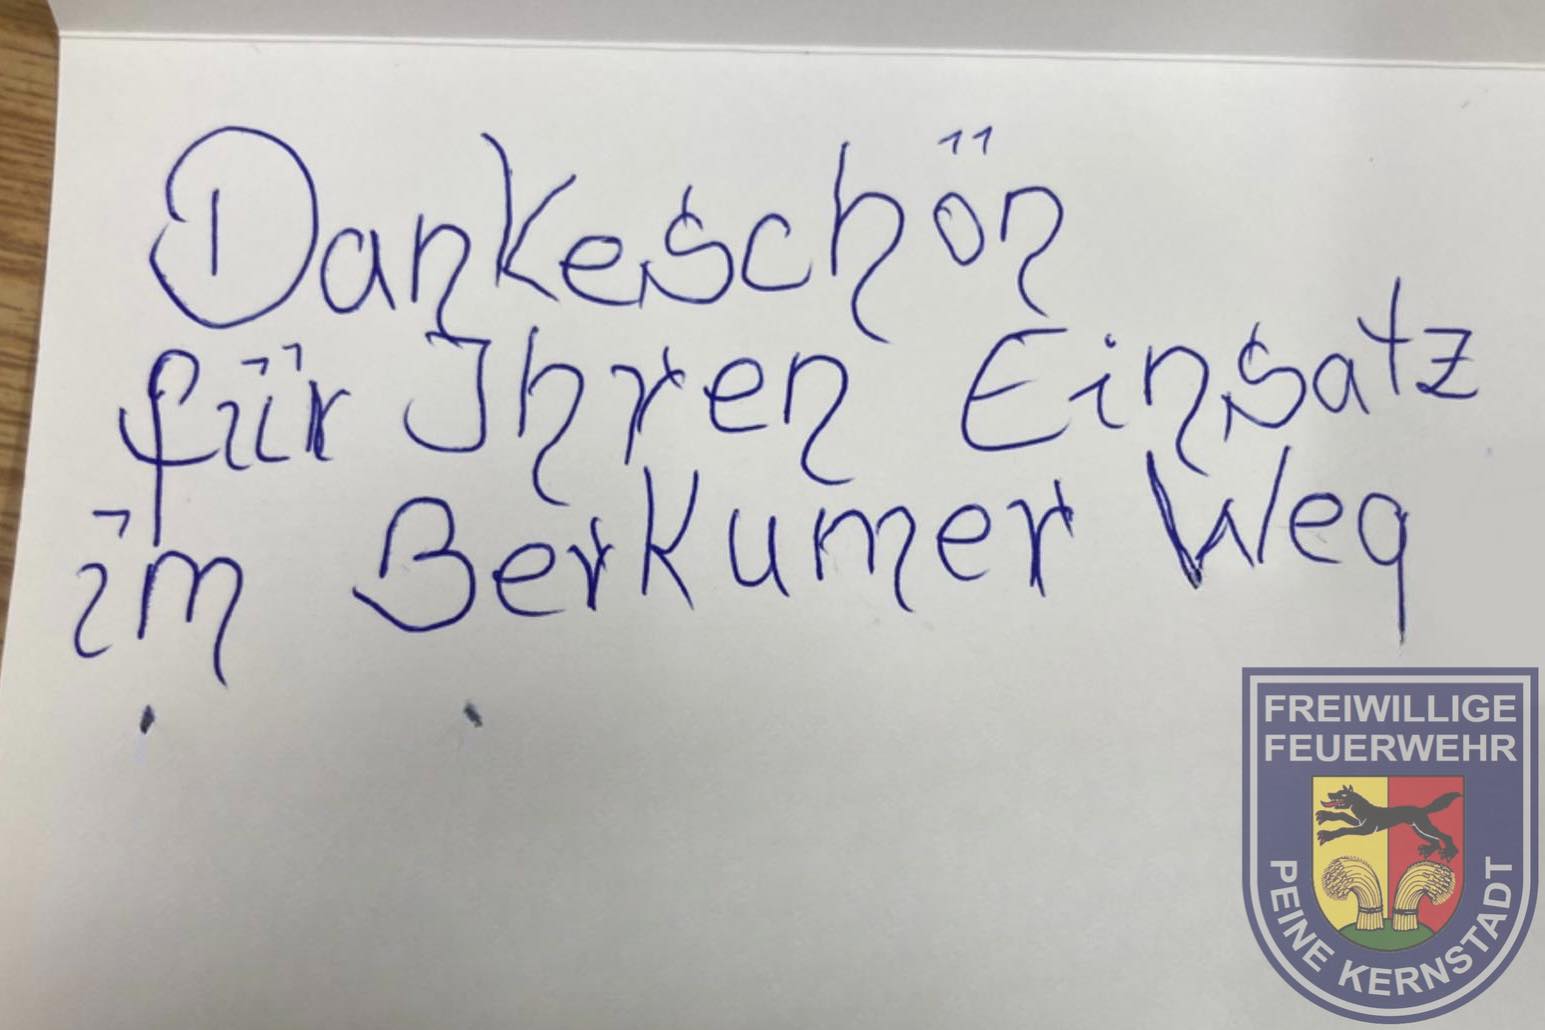 Dankeschön
für Ihren Einsatz
im Berkumer Weg
FREIWILLIGE
FEUERWEHR
PEINE KERNSTADT